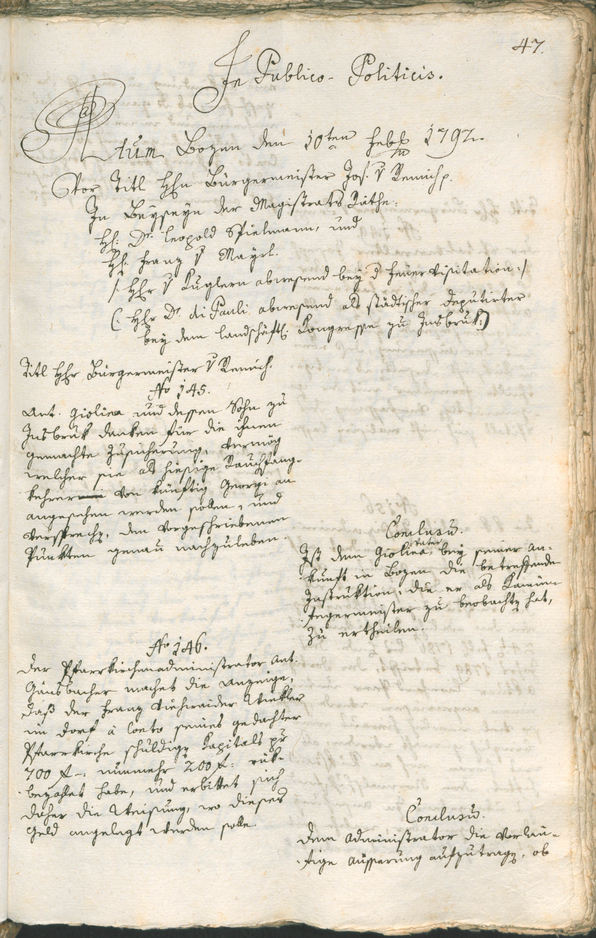 47.
In Publico-Politicis.
Actum Bozen den 10ten Febr. 1792.
Vor Titl Hhn Bürgermeister Jos. v Remich p.
In Beyseyn der Magistrats Räthe.
Hh. Dr. Leopold Spielmann, und
Hh. Franz v Mayrl.
/: Hhr v Kuglern abwesend bey d Feuer Visitation :/
(: Hhr Dr. di Pauli abwesend als städtischer Deputirter
bey dem landschäftl. Congresse zu Insbruk :)
Titl Hhr Bürgermeister v Remich.
No 145.
Ant. Giolina und dessen Sohn zu
Insbruk danken für die ihnen
gemachte Zusicherung, vermög
welcher sie als hiesige Rauchfang-
kehrer von künftig Georgi an
angesehen werden sollen, und
versprechen, den vorgeschriebenen
Punkten genau nachzuleben
Conclusum.
Ist dem Giolina Vater bey seiner An-
kunft in Bozen die betreffende
Instruktion, die er als Kamin-
fegermeister zu beobachten hat,
zu ertheilen.
No 146.
Der Pfarrkirchenadministrator Ant.
Gänsbacher machet die Anzeige,
daß der Franz
im Dorf à Conto seines gedachter
Pfarrkirche schuldigen Kapitals pr
700 f, nunmehr 200 f: rük-
bezahlet habe, und erbittet sich
daher die Weisung, wo dieses
Geld angelegt werden solle.
Conclusum.
Dem Administrator die vorläu-
fige Äusserung aufzutragen, ob